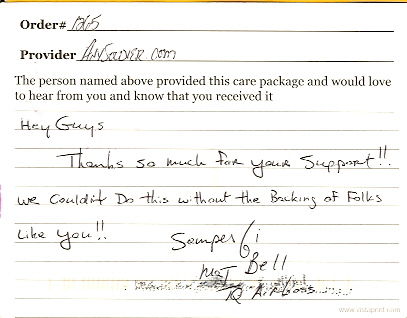 Order# 1265
Provider AnySoldier.com
The person named above provided this care package and would love
to hear from you and know that you received it
Hey Guys
Thanks so much for your support!!
we couldn't Do this without the Backing of Folks
Like you!!
Semper Fi
Bell
www.vistaprint.com